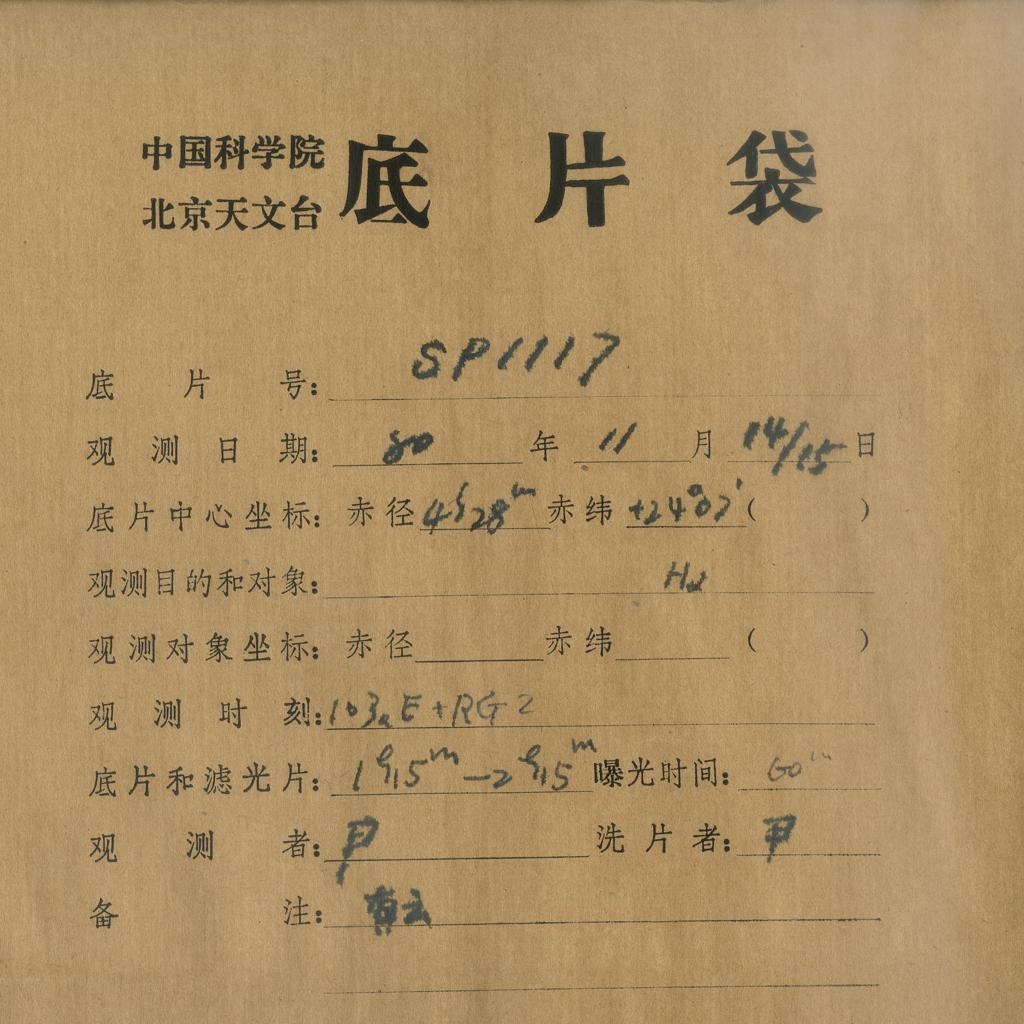 中国科学院
北京天文台
底片袋
底片号: SP1117
观测日期: 80 年 11 月 14/15 日
底片中心坐标: 赤径 4h28m 赤纬 +24°07' ( )
观测目的和对象: Hα
观测对象坐标: 赤径 赤纬 ( )
观测时刻: 103aE+RG2
底片和滤光片: 1h15m—2h15m 曝光时间: 60m
观测者: 尹 洗片者: 尹
备注: 有云